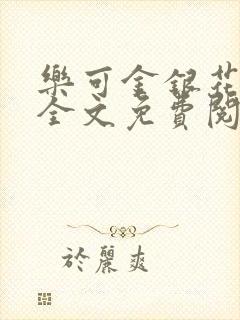 樂可金銀花
全文免費閱
於麗爽